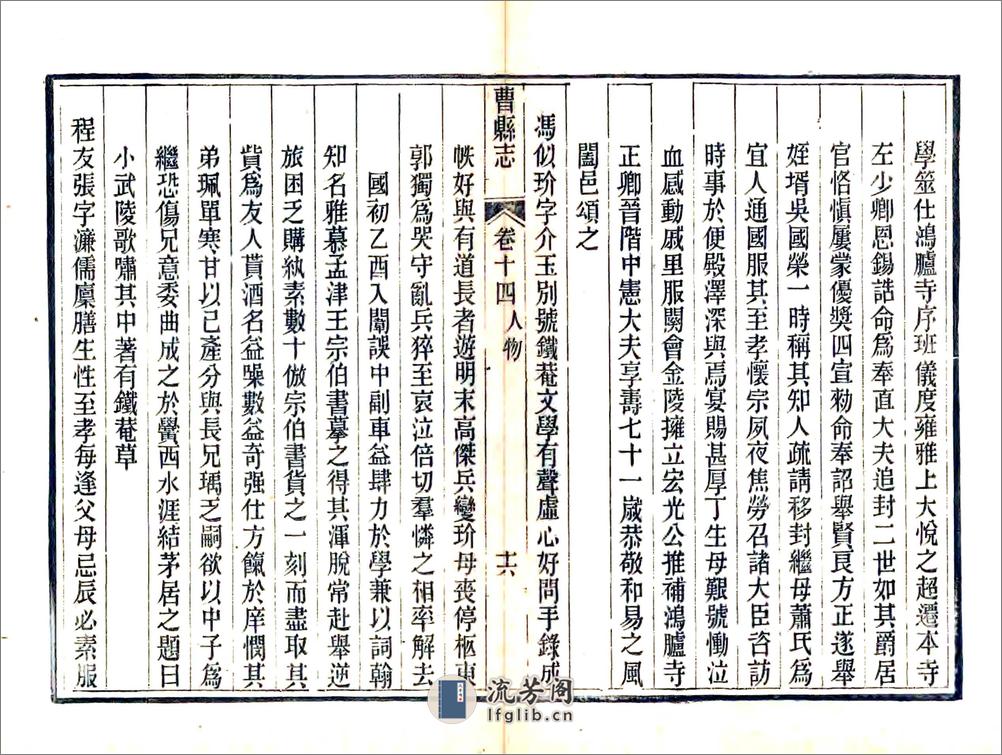 學筮仕鴻臚寺序班儀度雍雅上大悅之超遷本寺
左少卿恩錫誥命爲奉直大夫追封二世如其爵居
官恪愼屢蒙優獎四宣勑命奉詔舉賢良方正遂舉
姪壻吳國榮一時稱其知人疏請移封繼母蕭氏爲
宜人通國服其至孝懷宗夙夜焦勞召諸大臣咨訪
時事於便殿澤深與焉宴賜甚厚丁生母艱號慟泣
血感動戚里服闋會金陵擁立宏光公推補鴻臚寺
正卿晉階中憲大夫享壽七十一嵗恭敬和易之風
闔邑頌之
馮似玠字介玉別號鐵菴文學有聲虛心好問手錄成
帙好與有道長者遊明末高傑兵變玠母喪停柩東
郭獨爲哭守亂兵猝至哀泣倍切羣憐之相率解去
國初乙酉入闈誤中副車益肆力於學兼以詞翰
知名雅慕孟津王宗伯書摹之得其渾脫常赴舉逆
旅困乏購紈素數十倣宗伯書貨之一刻而盡取其
貲爲友人貰酒名益躁數益奇强仕方餼於庠憫其
弟珮單寒甘以己產分與長兄瑀乏嗣欲以中子爲
繼恐傷兄意委曲成之於黌西水涯結茅居之題曰
小武陵歌嘯其中著有鐵菴草
程友張字濂儒廩膳生性至孝每逢父母忌辰必素服
曹縣志
卷十四 人物
十六
流芳阁
lfglib.cn